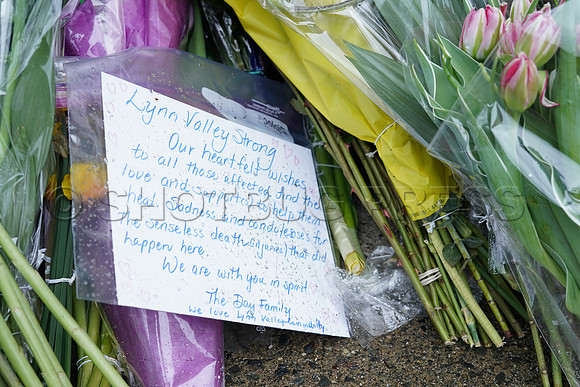 Lynn Valley Strong
Our heartfelt wishes
to all those affected, and the
love and support to help them
heal. Sadness and condolences for
the senseless death (injuries) that did
happen here.
We are with you in spirit
The Day Family
We love Lynn Valley Community
© SHOTBUG PRESS